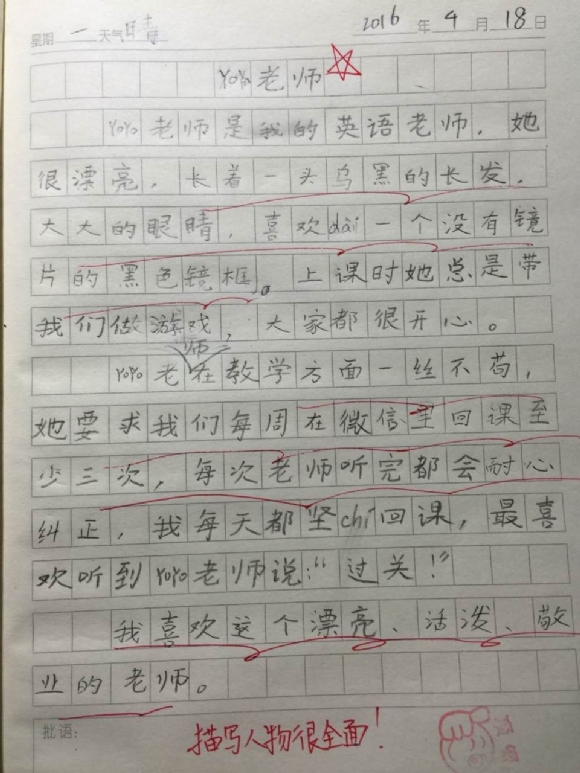 星期 一 天气 晴 2016 年 4 月 18 日
YOYO老师
YOYO老师是我的英语老师，她
很漂亮，长着一头乌黑的长发，
大大的眼睛，喜欢dài一个没有镜
片的黑色镜框。上课时她总是带
我们做游戏，大家都很开心。
YOYO老师在教学方面一丝不苟，
她要求我们每周在微信里回课至
少三次，每次老师听完都会耐心
纠正，我每天都坚chí回课，最喜
欢听到YOYO老师说：“过关！”
我喜欢这个漂亮、活泼、敬
业的老师。
批语：
描写人物很全面！